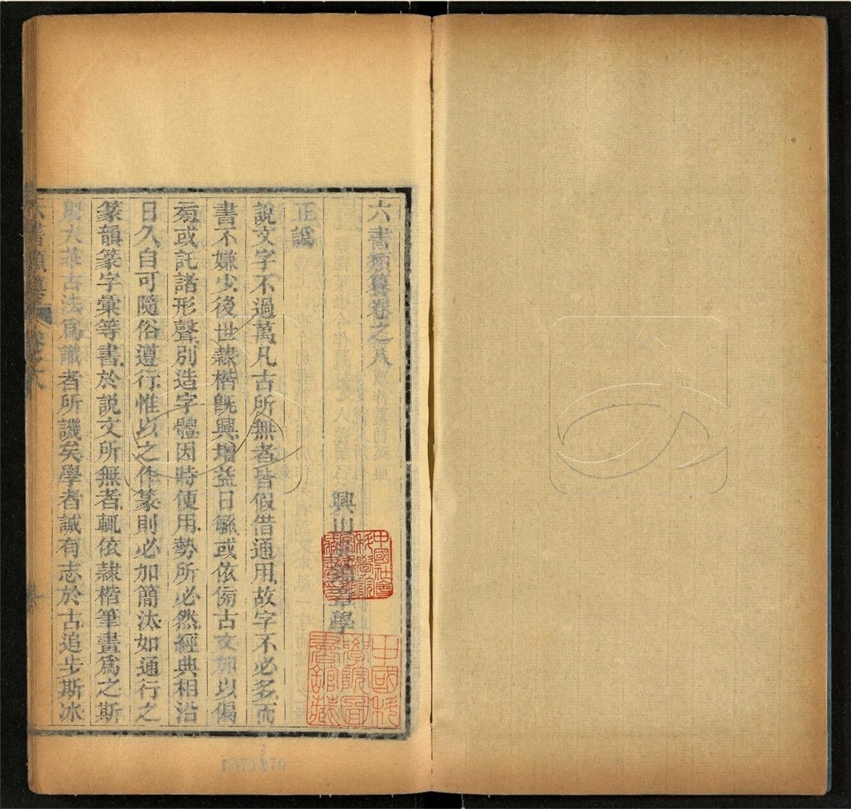 六書類纂卷之八
興山吳錦章學
正譌
說文字不過萬凡古所無者皆假借通用故字不必多而
書不嫌少後世隸楷旣興增益日繇或依傍古文加以偏
旁或託諸形聲別造字體因時便用勢所必然經典相沿
日久自可隨俗遵行惟以之作篆則必加簡汰如通行之
篆韻篆字彙等書於說文所無者輒依隸楷筆畫爲之斯
大乖古法爲識者所譏矣學者誠有志於古追步斯冰
六書類纂 卷之八
中國社會科學院
中國科學院圖書館藏
1371279